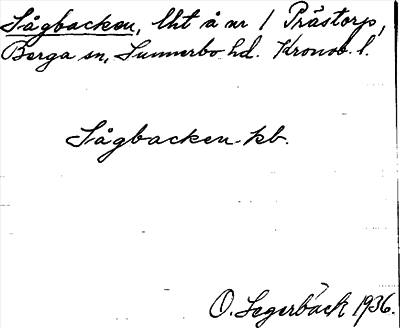 Sågbacken, lht å nr 1 Prästorp,
Berga sn, Sunnerbo hd. Kronob. l.
Sågbacken. kb.
O. Segerbäck 1936.